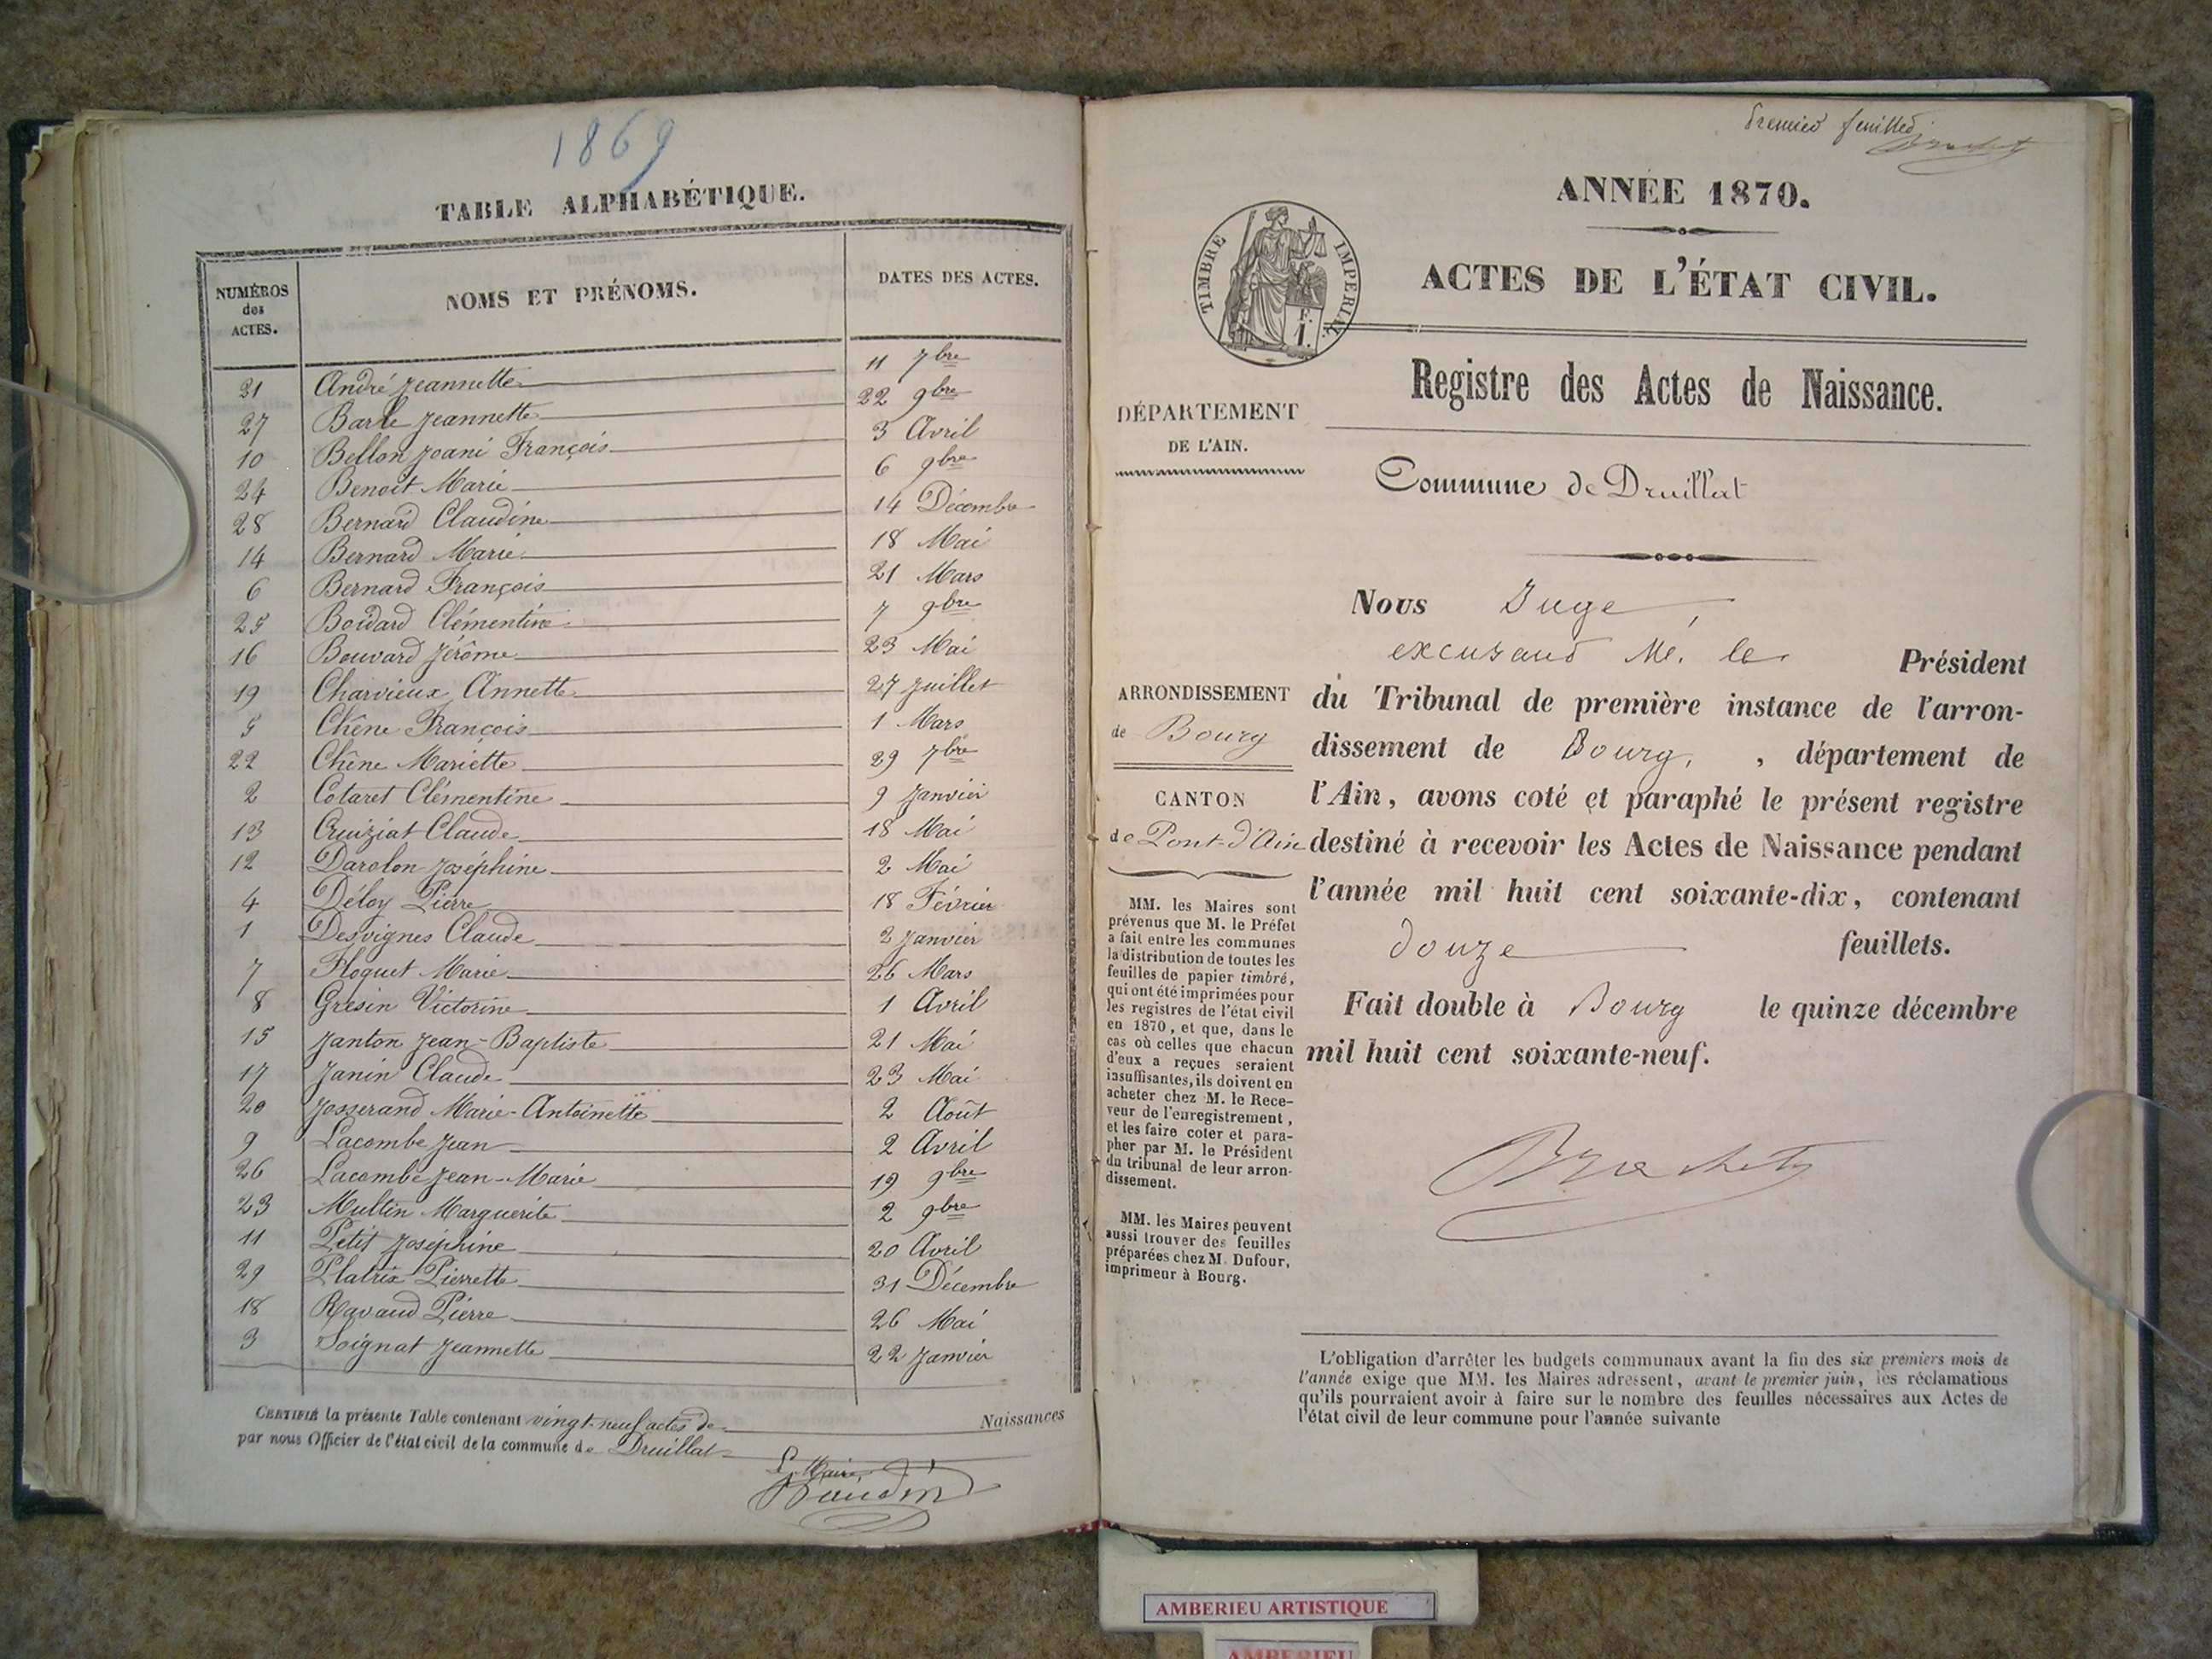 1869
TABLE ALPHABÉTIQUE.
NUMÉROS des ACTES. NOMS ET PRÉNOMS. DATES DES ACTES.
21 André Jeannette 11 7bre
27 Barle Jeannette 22 9bre
10 Bellon Joani François 3 Avril
24 Benoit Marie 6 9bre
28 Bernard Claudine 14 Décembre
14 Bernard Marie 18 Mai
6 Bernard François 21 Mars
25 Boidard Clémentine 7 9bre
16 Bouvard Jérôme 23 Mai
19 Charvieux Annette 27 Juillet
5 Chêne François 1 Mars
22 Chêne Mariette 29 7bre
2 Cotaret Clémentine 9 Janvier
13 Cruiziat Claude 18 Mai
12 Darolon Joséphine 2 Mai
4 Déloy Pierre 18 Février
1 Desvignes Claude 2 Janvier
7 Floquet Marie 26 Mars
8 Gresin Victorine 1 Avril
15 Janton Jean-Baptiste 21 Mai
17 Janin Claude 23 Mai
20 Josserand Marie-Antoinette 2 Août
9 Lacombe Jean 2 Avril
26 Lacombe Jean-Marie 19 9bre
23 Multin Marguerite 2 9bre
11 Petit Joséphine 20 Avril
29 Platrix Pierrette 31 Décembre
18 Ravaud Pierre 26 Mai
3 Soignat Jeannette 22 Janvier
CERTIFIÉ la présente Table contenant vingt-neuf actes de Naissances
par nous Officier de l'état civil de la commune de Druillat
Le Maire,
Premier feuillet
ANNÉE 1870.
TIMBRE IMPÉRIAL
1 F.
ACTES DE L'ÉTAT CIVIL.
Registre des Actes de Naissance.
DÉPARTEMENT
DE L'AIN.
Commune de Druillat
ARRONDISSEMENT
de Bourg
CANTON
de Pont-d'Ain
MM. les Maires sont
prévenus que M. le Préfet
a fait entre les communes
la distribution de toutes les
feuilles de papier timbré,
qui ont été imprimées pour
les registres de l'état civil
en 1870, et que, dans le
cas où celles que chacun
d'eux a reçues seraient
insuffisantes, ils doivent en
acheter chez M. le Rece-
veur de l'enregistrement,
et les faire coter et para-
pher par M. le Président
du tribunal de leur arron-
dissement.
MM. les Maires peuvent
aussi trouver des feuilles
préparées chez M. Dufour,
imprimeur à Bourg.
Nous Juge,
excusant M. le Président
du Tribunal de première instance de l'arron-
dissement de Bourg, , département de
l'Ain, avons coté et paraphé le présent registre
destiné à recevoir les Actes de Naissance pendant
l'année mil huit cent soixante-dix, contenant
douze feuillets.
Fait double à Bourg le quinze décembre
mil huit cent soixante-neuf.
L'obligation d'arrêter les budgets communaux avant la fin des six premiers mois de
l'année exige que MM. les Maires adressent, avant le premier juin, les réclamations
qu'ils pourraient avoir à faire sur le nombre des feuilles nécessaires aux Actes de
l'état civil de leur commune pour l'année suivante
AMBERIEU ARTISTIQUE
AMBERIEU